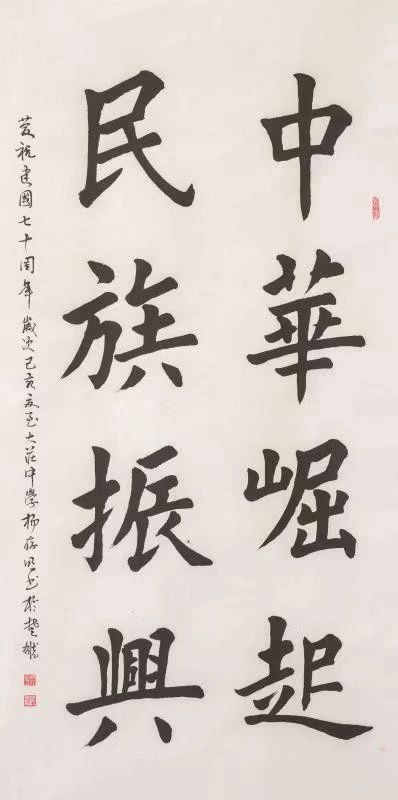 中華崛起
民族振興
慶祝建國七十周年歲次己亥夏至大莊中學楊存明書於楚雄